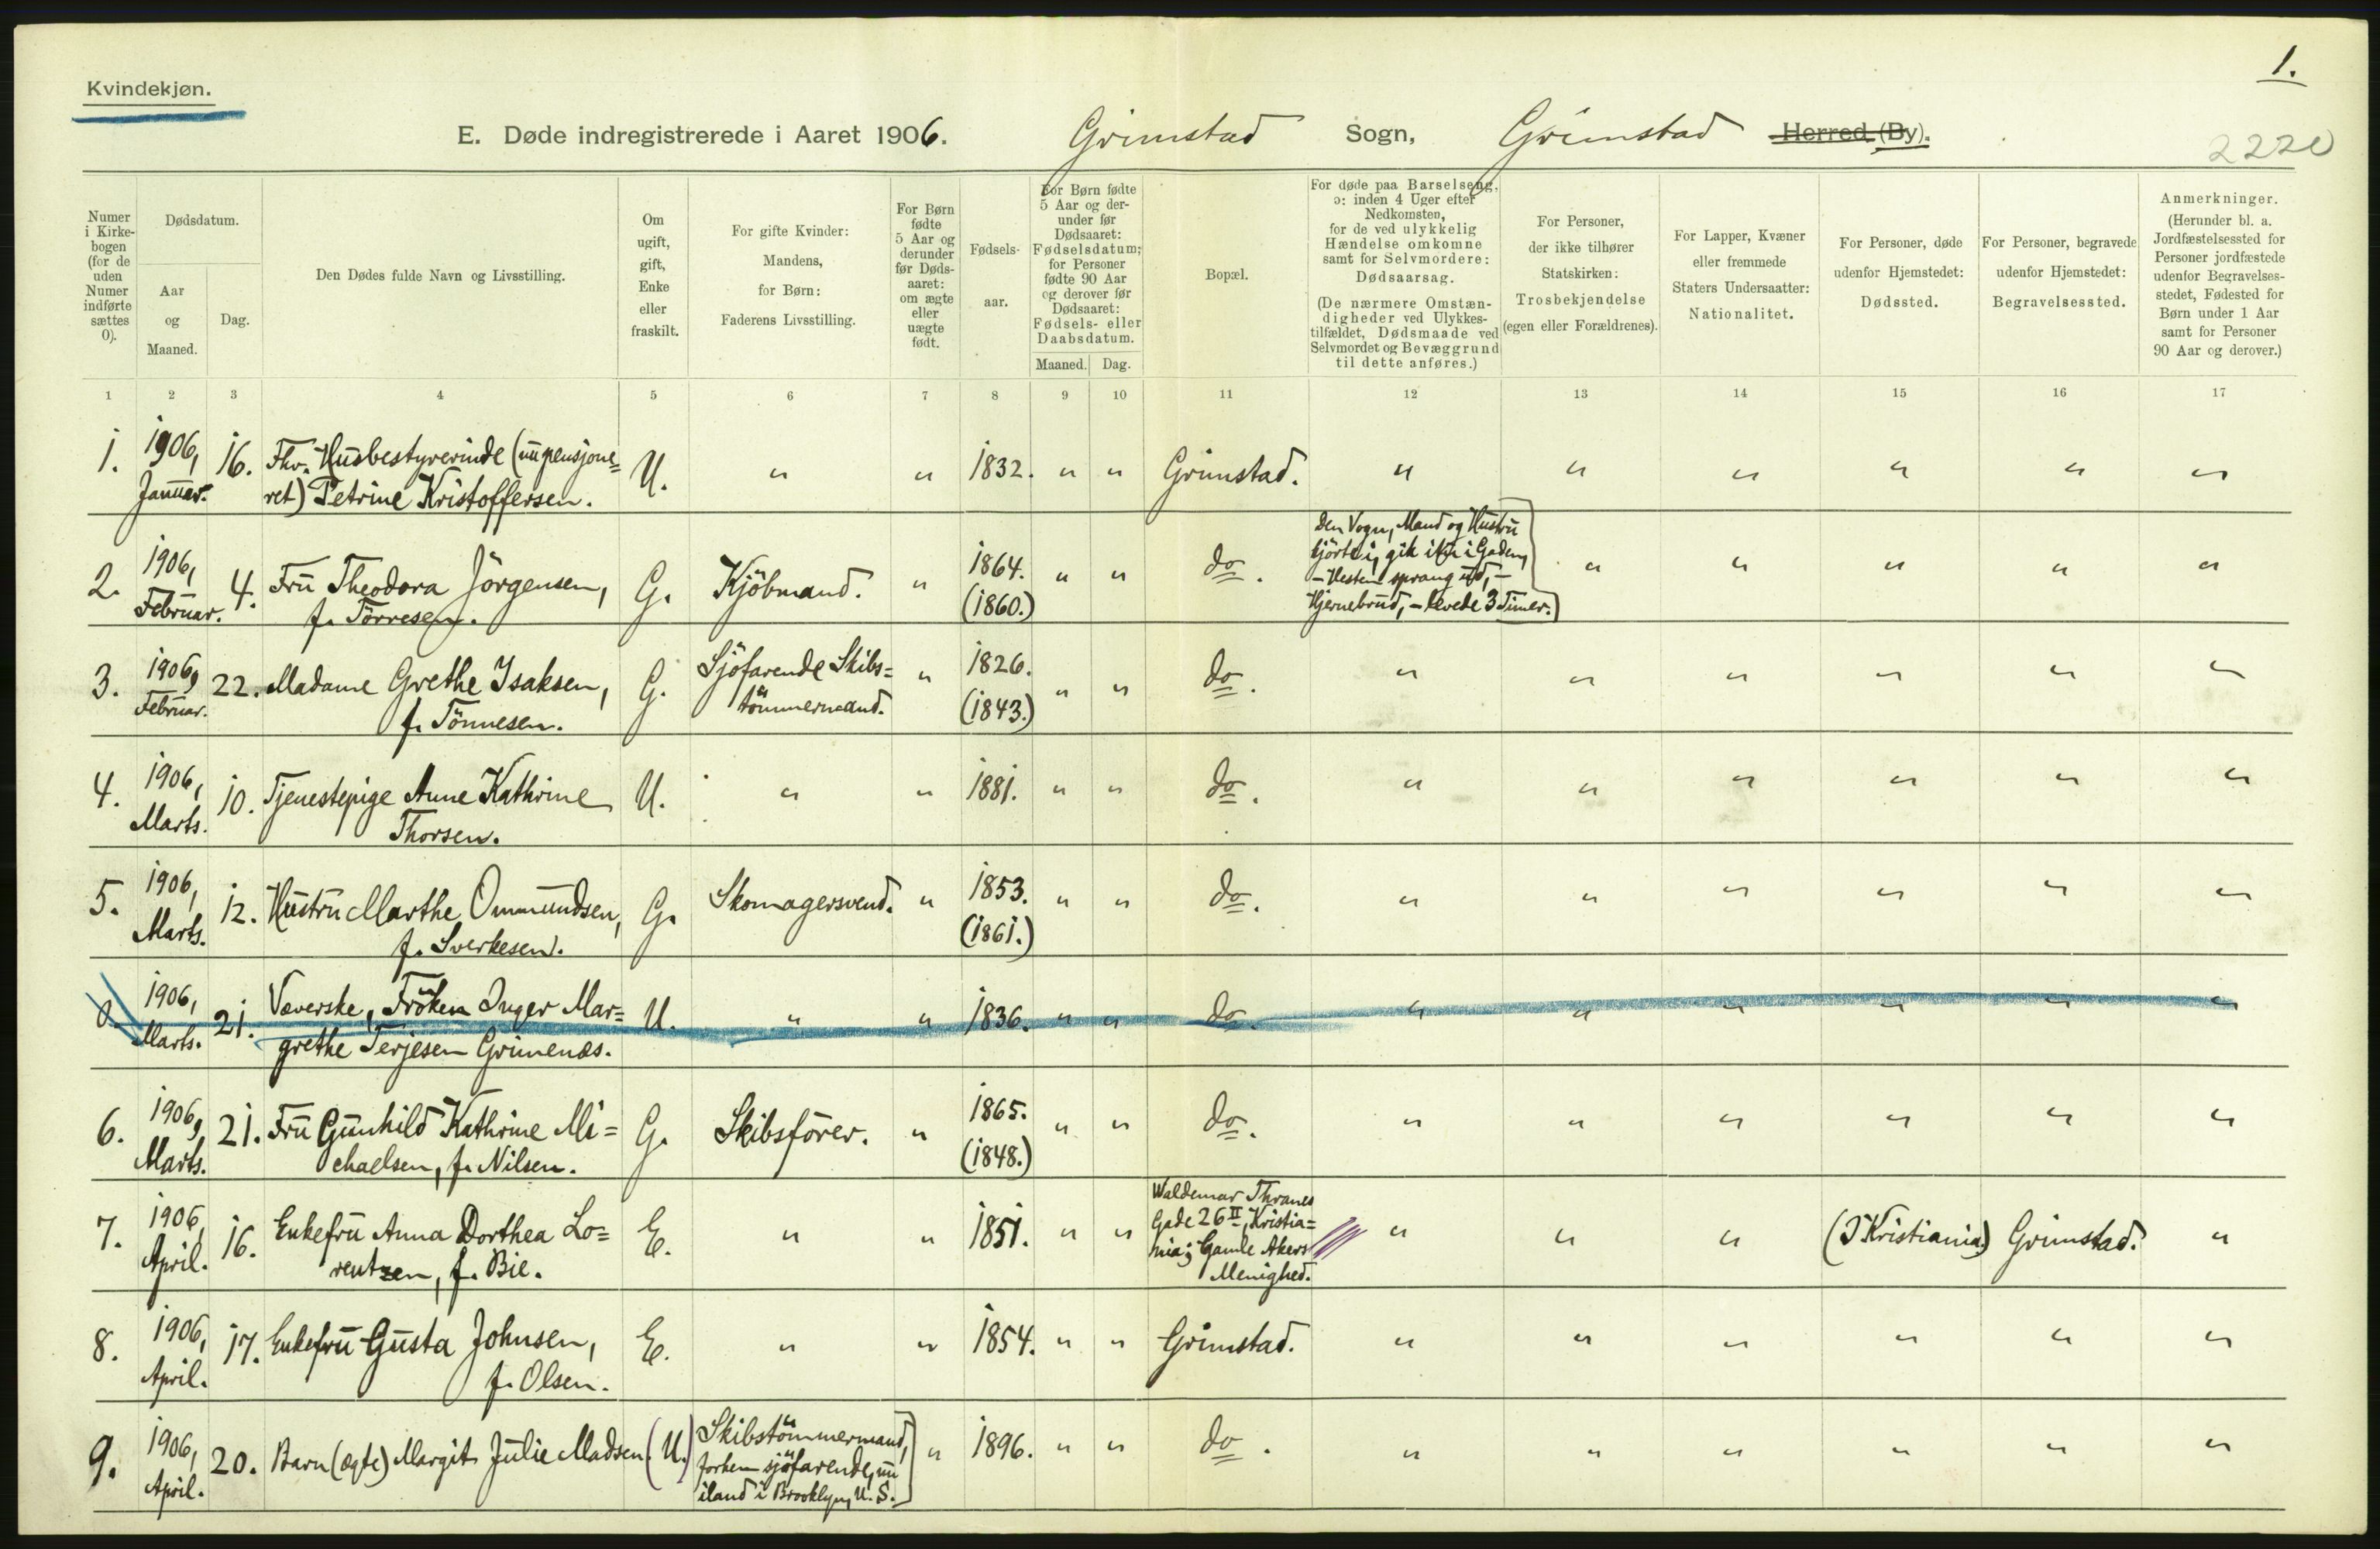 1.
Kvindekjøn.
E. Døde indregistrerede i Aaret 1906. Grimstad Sogn, Grimstad Herred (By).
2220
Numer i Kirkebogen (for de uden Numer indførte sættes 0).
Dødsdatum.
Aar og Maaned.
Dag.
Den Dødes fulde Navn og Livsstilling.
Om ugift, gift, Enke eller fraskilt.
For gifte Kvinder: Mandens, for Børn: Faderens Livsstilling.
For Børn fødte 5 Aar og derunder før Dødsaaret: om ægte eller uægte født.
Fødselsaar.
For Børn fødte 5 Aar og derunder før Dødsaaret: Fødselsdatum; for Personer fødte 90 Aar og derover før Dødsaaret: Fødsels- eller Daabsdatum.
Maaned. Dag.
Bopæl.
For døde paa Barselseng, ɔ: inden 4 Uger efter Nedkomsten, for de ved ulykkelig Hændelse omkomne samt for Selvmordere: Dødsaarsag.
(De nærmere Omstændigheder ved Ulykkestilfældet, Dødsmaade ved Selvmordet og Bevæggrund til dette anføres.)
For Personer, der ikke tilhører Statskirken: Trosbekjendelse (egen eller Forældrenes).
For Lapper, Kvæner eller fremmede Staters Undersaatter: Nationalitet.
For Personer, døde udenfor Hjemstedet: Dødssted.
For Personer, begravede udenfor Hjemstedet: Begravelsessted.
Anmerkninger.
(Herunder bl. a. Jordfæstelsessted for Personer jordfæstede udenfor Begravelsesstedet, Fødested for Børn under 1 Aar samt for Personer 90 Aar og derover.)
1 2 3 4 5 6 7 8 9 10 11 12 13 14 15 16 17
1. 1906, Januar. 16. Fhv. Husbestyrerinde (nu pensjone=
ret) Petrine Kristoffersen. U. " " 1832. " " Grimstad. " " " " " "
2. 1906, Februar. 4. Fru Theodora Jörgensen,
f. Törresen. G. Kjöbmand. " 1864. (1860.) " " do.
Den Vogn, Mand og Hustru
kjörte i, gik itu i Gaden,
– Hesten sprang ud, –
Hjernebrud, – levede 3 Timer.) " " " " "
3. 1906, Februar. 22. Madame Grethe Isaksen,
f. Tönnesen. G. Sjöfarende Skibs=
tömmermand. " 1826. (1843.) " " do. " " " " " "
4. 1906, Marts. 10. Tjenestepige Anne Kathrine
Thorsen. U. " " 1881. " " do. " " " " " "
5. 1906, Marts. 12. Hustru Marthe Ommundsen,
f. Sverkesen. G. Skomagersvend. " 1853. (1861.) " " do. " " " " " "
0. 1906, Marts. 21. Væverske, Fröken Inger Mar=
grethe Terjesen Grimenæs. U. " " 1836. " " do. " " " " " "
6. 1906, Marts. 21. Fru Gunhild Kathrine Mi=
chaelsen, f. Nilsen. G. Skibsförer. " 1865. (1848.) " " do. " " " " " "
7. 1906, April. 16. Enkefru Anna Dorthea Lo=
rentzen, f. Bie. E. " " 1851. " "
Waldemar Thranes
Gade 26 II, Kristia=
nia; Gamle Akers
Menighed. " " " (I Kristiania.) Grimstad. "
8. 1906, April. 17. Enkefru Gusta Johnsen,
f. Olsen. E. " " 1854. " " Grimstad. " " " " " "
9. 1906, April. 20. Barn (ægte) Margit Julie Madsen. (U.)
Skibstömmermand,
forhen sjöfarende, nu
iland i Brooklyn, U. S. " 1896. " " do. " " " " " "